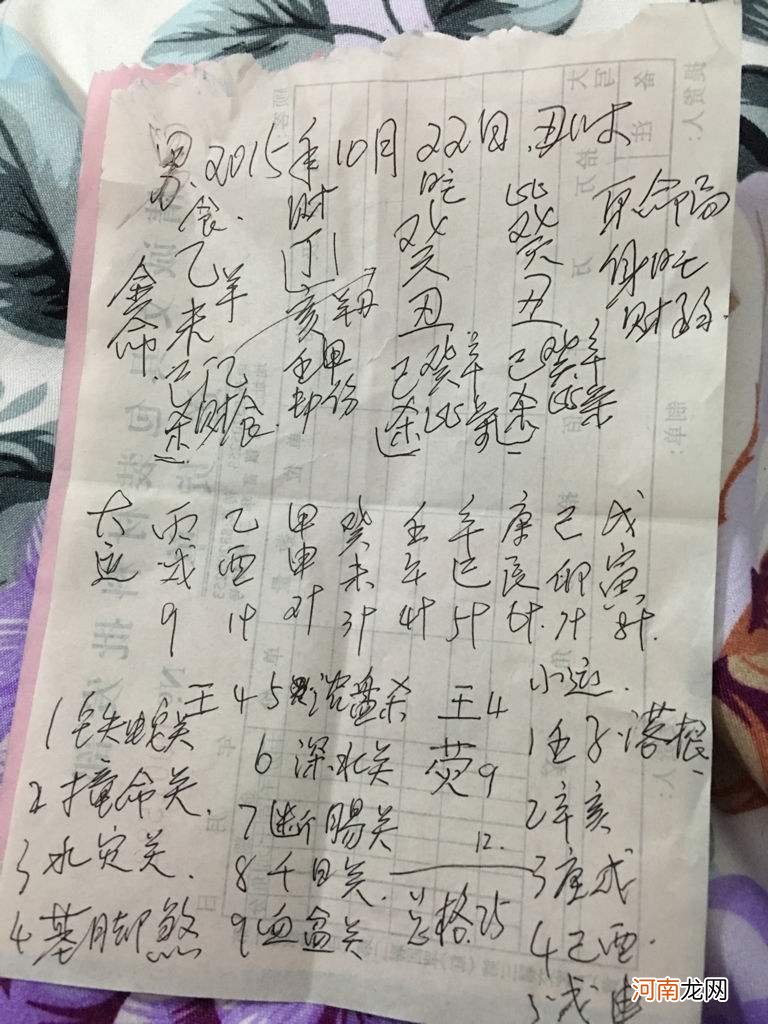 男.2015年10月22日.丑时
食. 财 旺 比 原命局
金命 乙未 羊 丁亥 癸丑 癸丑 身旺
财弱.
己丁乙 壬甲 己癸辛 己癸辛
杀财食 劫伤 杀比枭 杀比枭
大运 丙戌 乙酉 甲申 癸未 壬午 辛巳 庚辰 己卯 戊寅
9 1十 2十 3十 4十 5十 6十 7十 8十.
小运.
1 铁蛇关
2 撞命关.
3 水灾关.
4 基脚煞
王 4
5 盘杀
6 深水关
7 断肠关
8 千日关.
9 血盆关
王 4
荧 9
12.
总格.25
1 壬子.落根
2 辛亥
3 庚戌
4 己酉.
5 戊申
河南龙网